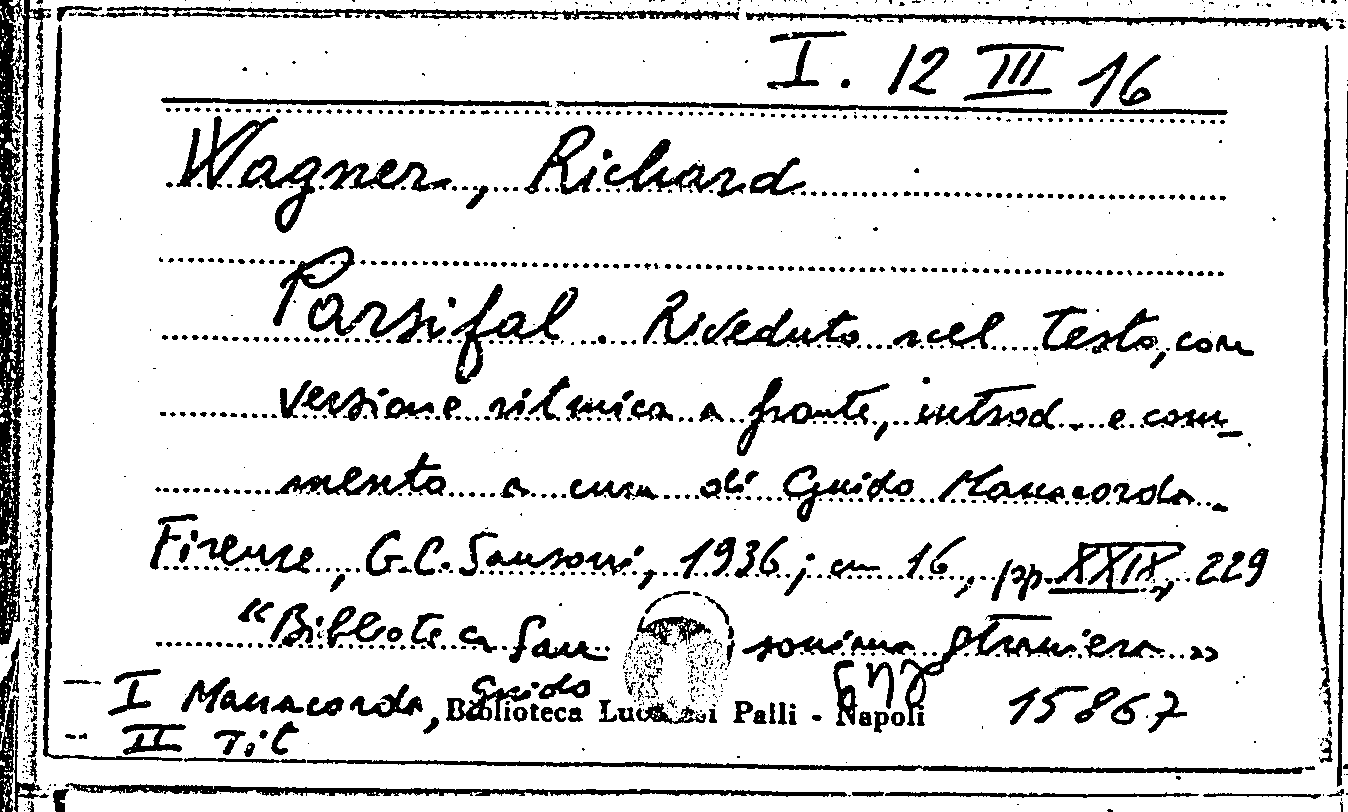 I. 12 III 16
Wagner, Richard
Parsifal. Riveduto nel testo, con
versione ritmica a fronte, introd. e com-
mento a cura di Guido Manacorda.
Firenze, G.C. Sansoni, 1936; in 16, pp. XXIX, 229
"Biblioteca San soniana straniera »
I Manacorda, Guido
Biblioteca Lucchesi Palli - Napoli
15867
II Tit